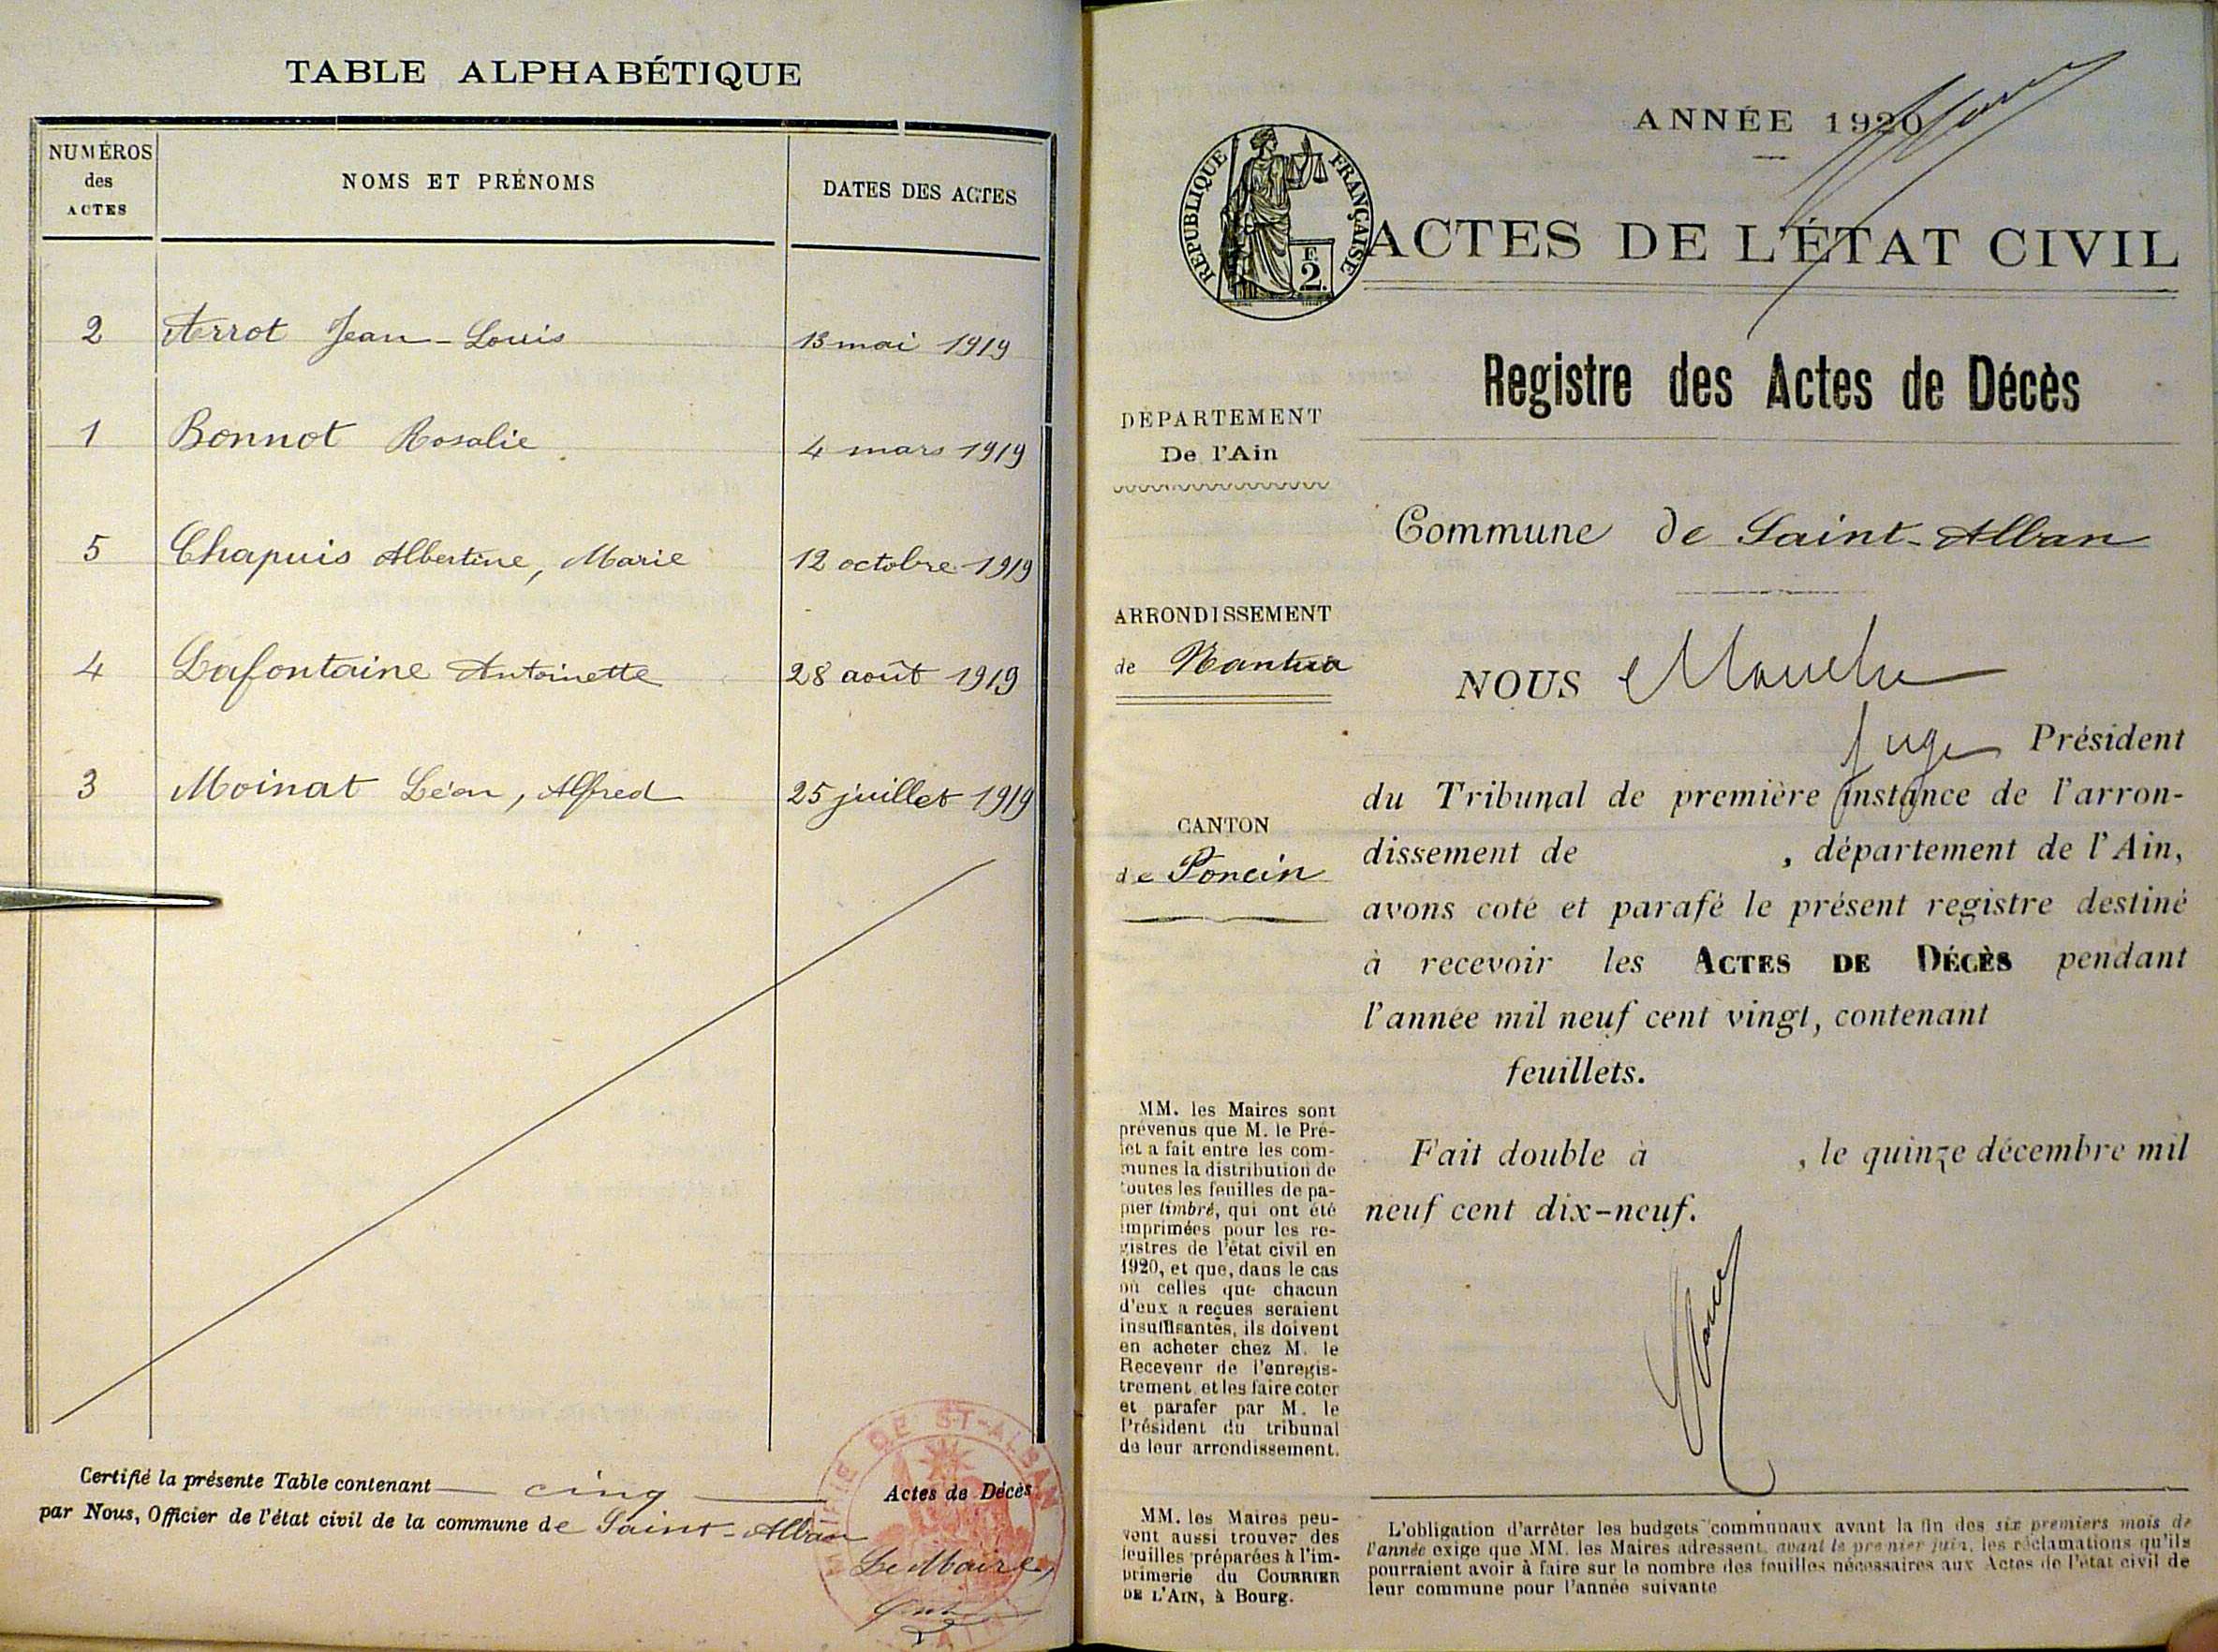 TABLE ALPHABÉTIQUE
NUMÉROS
des
ACTES
NOMS ET PRÉNOMS
DATES DES ACTES
2 Aerrot Jean-Louis 13 mai 1919
1 Bonnot Rosalie 4 mars 1919
5 Chapuis Albertine, Marie 12 octobre 1919
4 Lafontaine Antoinette 28 août 1919
3 Moinat Léon, Alfred 25 juillet 1919
Certifié la présente Table contenant cinq Actes de Décès
par Nous, Officier de l'état civil de la commune de Saint-Alban
Le Maire,
MAIRIE DE ST-ALBAN
AIN
ANNÉE 1920
RÉPUBLIQUE FRANÇAISE
F.
2.
ACTES DE L'ÉTAT CIVIL
Registre des Actes de Décès
DÉPARTEMENT
De l'Ain
Commune de Saint-Alban
ARRONDISSEMENT
de Nantua
NOUS
juge Président
du Tribunal de première instance de l'arron-
dissement de , département de l'Ain,
avons coté et parafé le présent registre destiné
à recevoir les ACTES DE DÉCÈS pendant
l'année mil neuf cent vingt, contenant
feuillets.
Fait double à , le quinze décembre mil
neuf cent dix-neuf.
CANTON
de Poncin
MM. les Maires sont
prévenus que M. le Pré-
fet a fait entre les com-
munes la distribution de
toutes les feuilles de pa-
pier timbré, qui ont été
imprimées pour les re-
gistres de l'état civil en
1920, et que, dans le cas
où celles que chacun
d'eux a reçues seraient
insuffisantes, ils doivent
en acheter chez M. le
Receveur de l'enregis-
trement et les faire coter
et parafer par M. le
Président du tribunal
de leur arrondissement.
MM. les Maires peu-
vent aussi trouver des
feuilles préparées à l'im-
primerie du COURRIER
DE L'AIN, à Bourg.
L'obligation d'arrêter les budgets communaux avant la fin des six premiers mois de
l'année exige que MM. les Maires adressent, avant le premier juin, les réclamations qu'ils
pourraient avoir à faire sur le nombre des feuilles nécessaires aux Actes de l'état civil de
leur commune pour l'année suivante